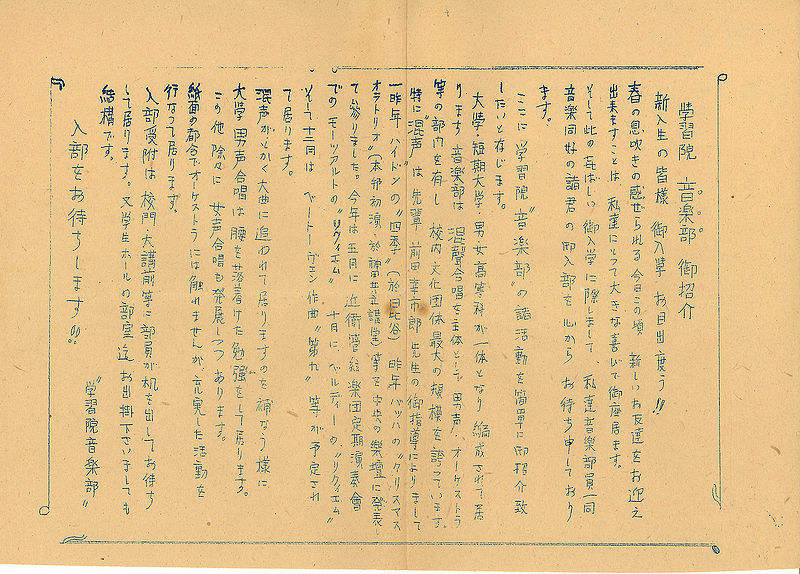 学習院 音楽部 御紹介
新入生の皆様 御入学 お目出度う!!
春の息吹きの感ぜられる今日この頃 新しいお友達をお迎え
出来ますことは、私達にとって大きな喜びで御座居ます。
そして此の喜ばしい御入学に際しまして、私達音楽部員一同
音楽同好の諸君の御入部を心から お待ち申しており
ます。
ここに 学習院〝音楽部〟の諸活動を簡単に御紹介致
したいと存じます。
大学・短期大学・男女高等科が一体となり 編成されて居
ります 音楽部は 混聲合唱を主体とし、男声、オーケストラ
等の部内を有し 校内文化団体最大の規模を誇っています。
特に〝混声〟は 先輩 前田幸市郎 先生の御指導によりまして
一昨年 ハイドンの〝四季〟(於日比谷) 昨年バッハの〝クリスマス
オラトリオ〟(本邦初演・於神田共立講堂)等を中央の樂壇に発表し
て参りました。今年は五月に 近衛管絃楽団定期演奏會
でのモーツアルトの〝リクイエム〟 十月に、ベルディーの〝リクイエム〟
そして十二月は ベートーヴェン作曲〝第九〟等が予定され
て居ります。
混声がとかく大曲に追われて居りますのを補なう様に
大学男声合唱は 腰を落着けた勉強をして居ります。
この他 除々に 女声合唱も発展しつつあります。
紙面の都合でオーケストラには触れませんが、充実した活動を
行なって居ります。
入部受附は 校門・大講前等に部員が机を出してお待ち
して居ります。又学生ホールの部室迄お出掛下さいましても
結構です。
入部をお待ちします!!!
〝学習院音楽部〟